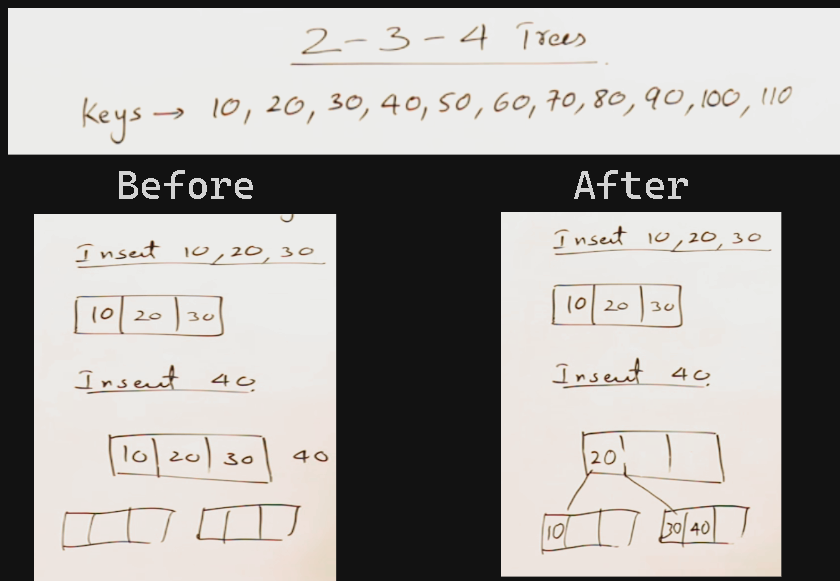 2-3-4 Trees
Keys → 10, 20, 30, 40, 50, 60, 70, 80, 90, 100, 110
Before
After
Insert 10, 20, 30
10 20 30
Insert 40
10 20 30 40
Insert 10, 20, 30
10 20 30
Insert 40
20
10
30 40